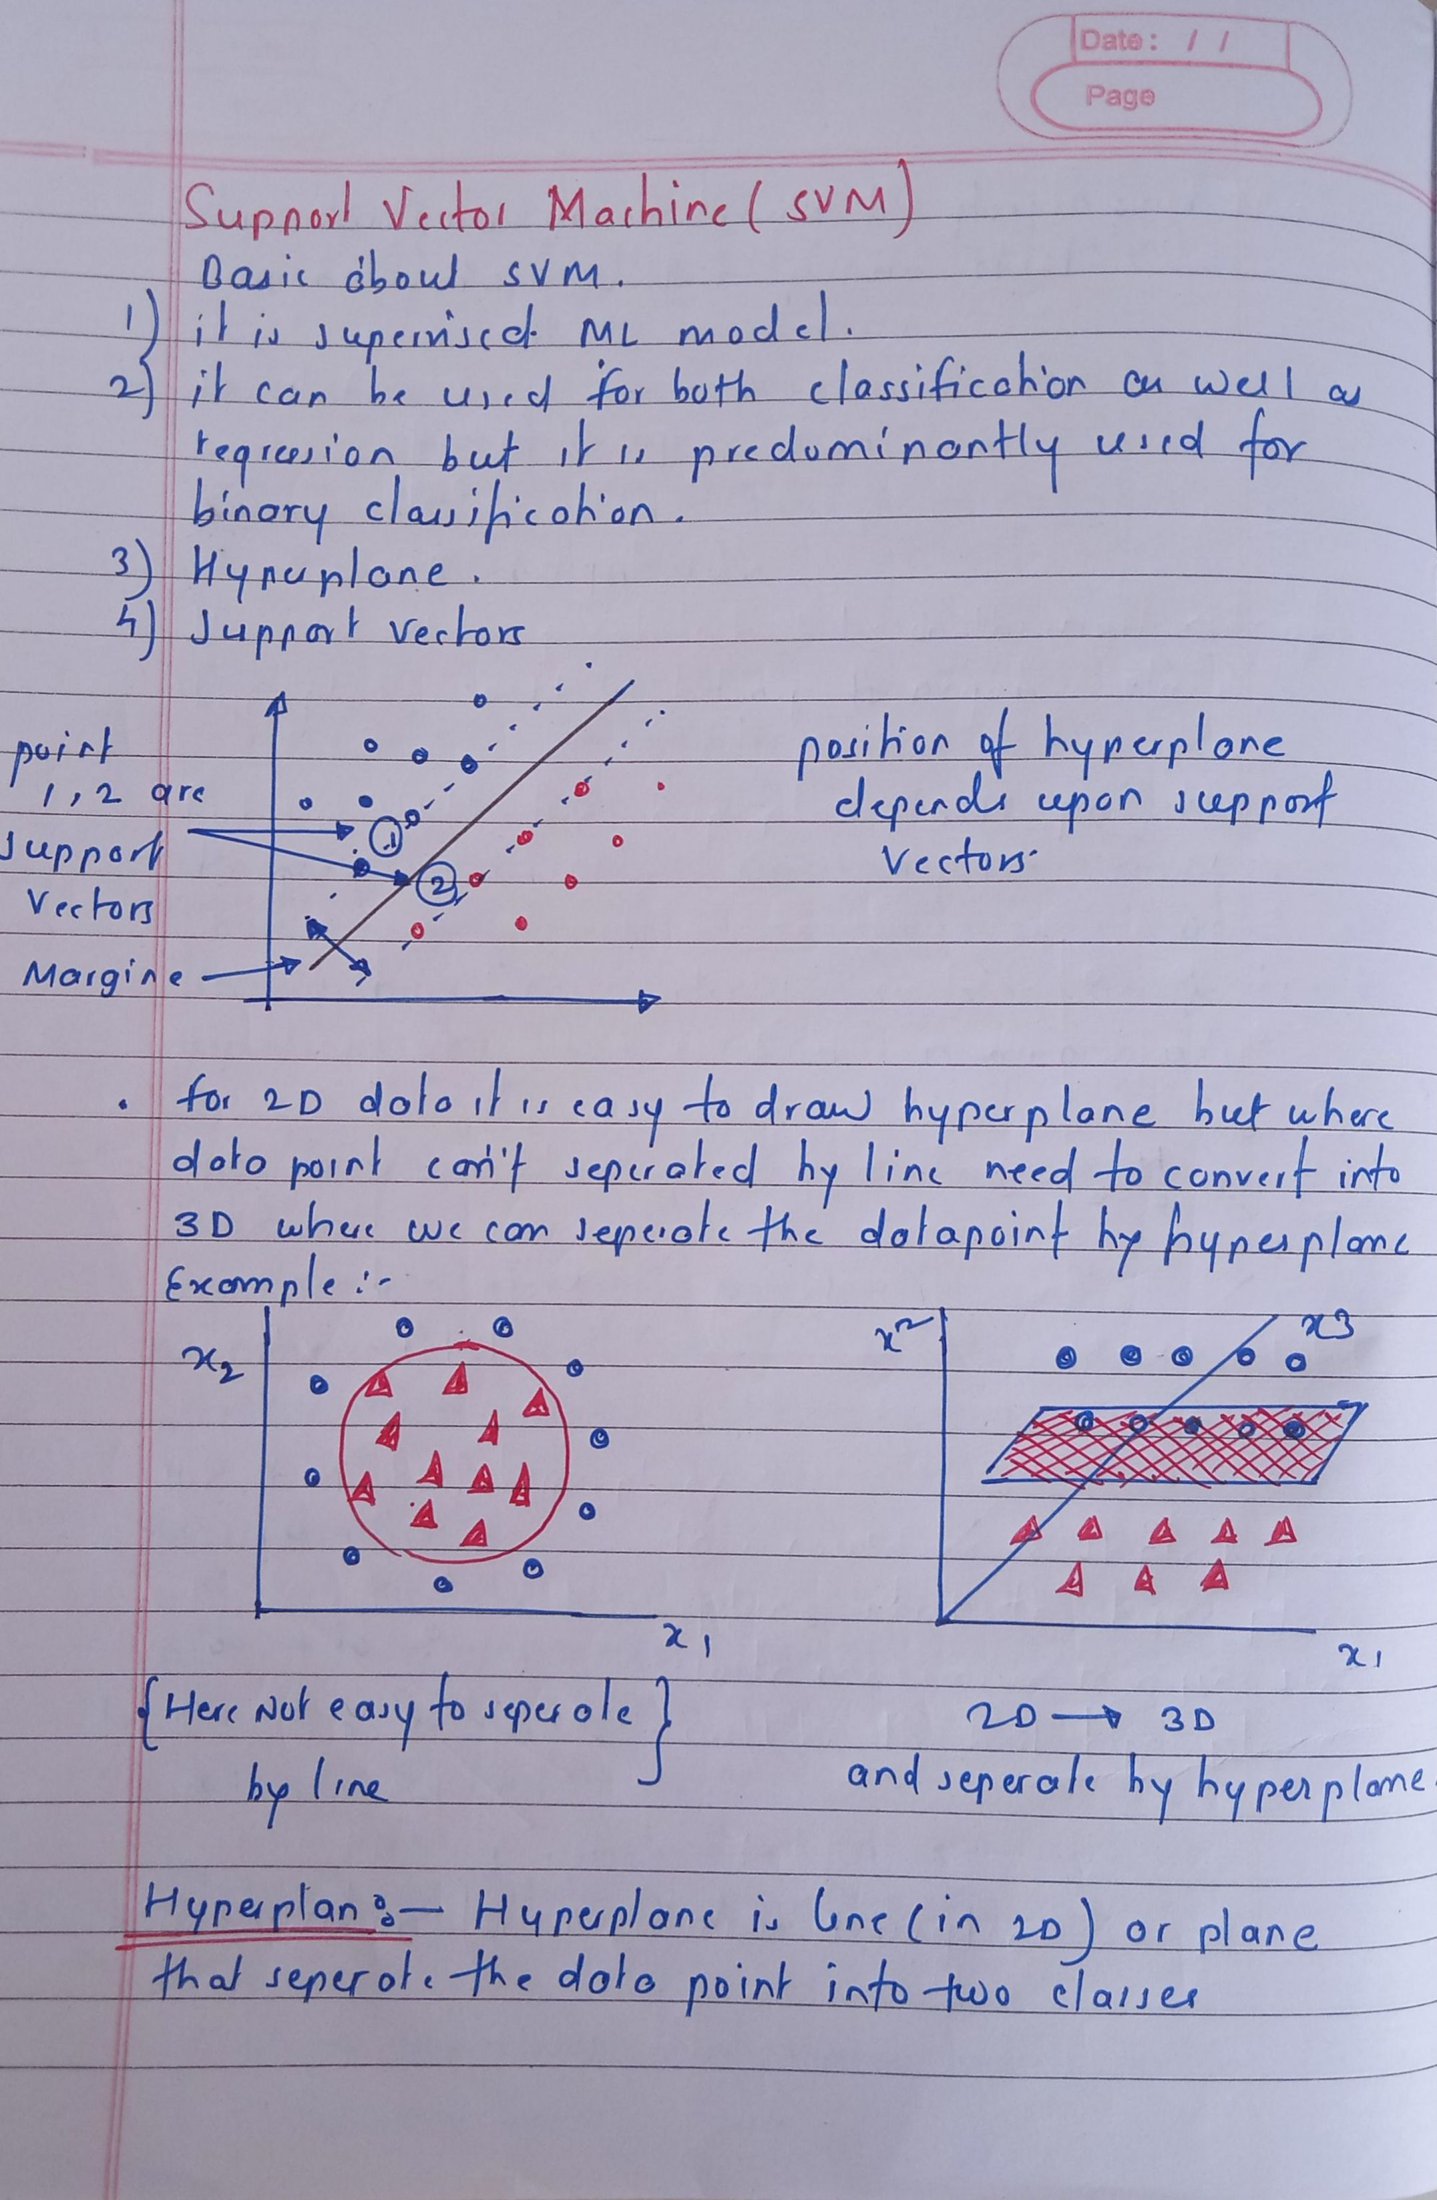 Date: / /
Page
Support Vector Machine (SVM)
Basic about SVM.
1) it is supervised ML model.
2) it can be used for both classification as well as
regression but it is predominantly used for
binary classification.
3) Hyperplane.
4) Support vectors
point
1, 2 are
support
vectors
Margine
1
2
position of hyperplane
depends upon support
vectors.
. for 2D data it is easy to draw hyperplane but where
data point can't seperated by line need to convert into
3D where we can seperate the datapoint by hyperplane
Example :-
x2
x1
x2
x3
x1
{Here Not easy to seperate}
by line
2D → 3D
and seperate by hyperplane.
Hyperplan :- Hyperplane is line (in 2D) or plane
that seperate the data point into two classes